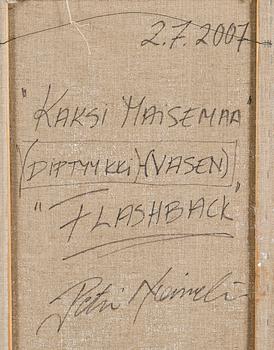 2.7.2007
"KAKSI MAISEMAA"
(DIPTYYKKI)(VASEN)
"FLASHBACK"
Petri